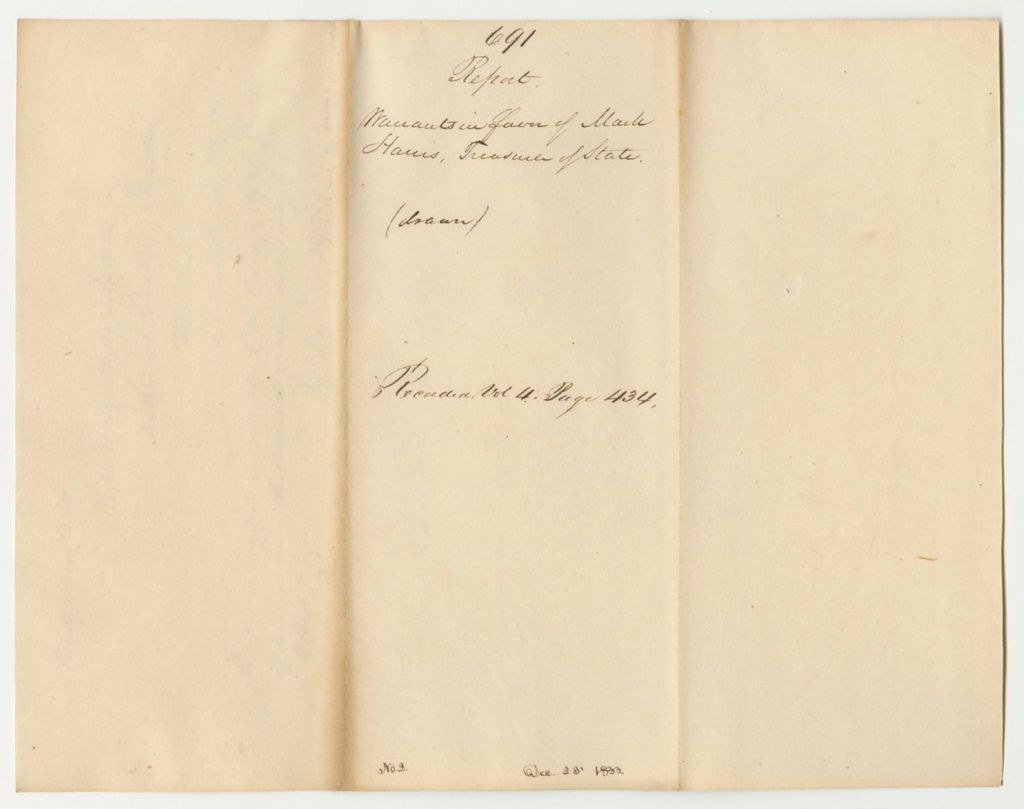 691
Report.
Warrants in favor of Mark
Harris, Treasurer of State.
(drawn)
Recorded Vol 4. Page 434.
No 2.
Dec 28' 1833.